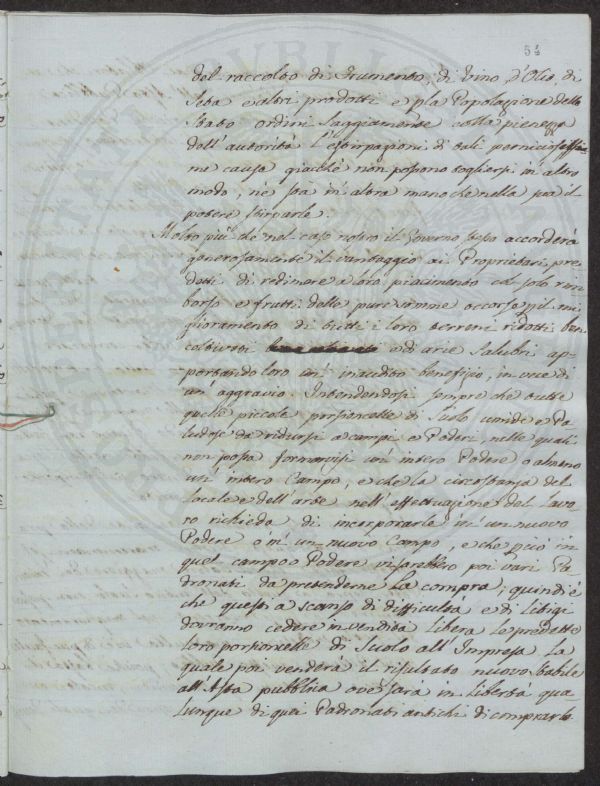 54
del raccolto di Frumento, di Vino, d'Olio, di
Seta e altri prodotti e p la Popolazione dello
Stato ordini saggiamente colla pienezza
dell'autorità l'estirpazioni di tali perniciosissi
me cause giacchè non possono togliersi in altro
modo, ne sia in altra mano che nella sua il
potere sbrigarle.
Molto più che nel caso nostro il Governo stesso accorderà
generosamente il vantaggio ai Proprietari, pre
detti di redimere a loro piacimento col solo rim
borso e frutti delle pure somme occorse p il mi
glioramento di tutti i loro terreni ridotti ben
coltivati e di arie salubri ap
portando loro un' inaudito benefizio, in vece di
un' aggravio. Intendendosi sempre che tutte
quelle piccole porzioncelle di Suolo umide e Pa
ludose da ridursi a campi e Poderi, nelle quali
non possa formarsi un' intero Podere o almeno
un' intero Campo, e che la circostanza del
locale e dell'arte nell'effettuazione del Lavo
ro richieda di incorporarle in un nuovo
Podere o in un nuovo Campo, e che ciò in
quel campo o Podere vi sarebbero poi vari Pa
dronati da pretenderne la compra, quindi è
che questi a scanso di difficoltà e di litigi
dovranno cedere in vendita libera le predette
loro porzioncelle di Suolo all'Impresa la
quale poi venderà il risultato nuovo stabile
all'Asta pubblica ove sarà in libertà qua
lunque di quei Padronati antichi di comprarlo